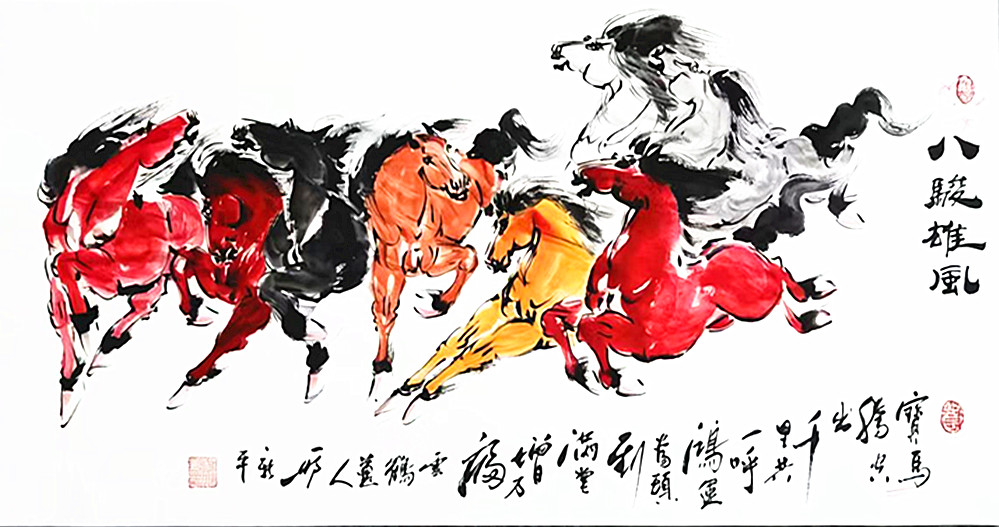 八駿雄風
寶馬
騰空
出
千
里共
一呼
鴻運
當頭
到
滿堂
增
万
福
雲
鶴
人